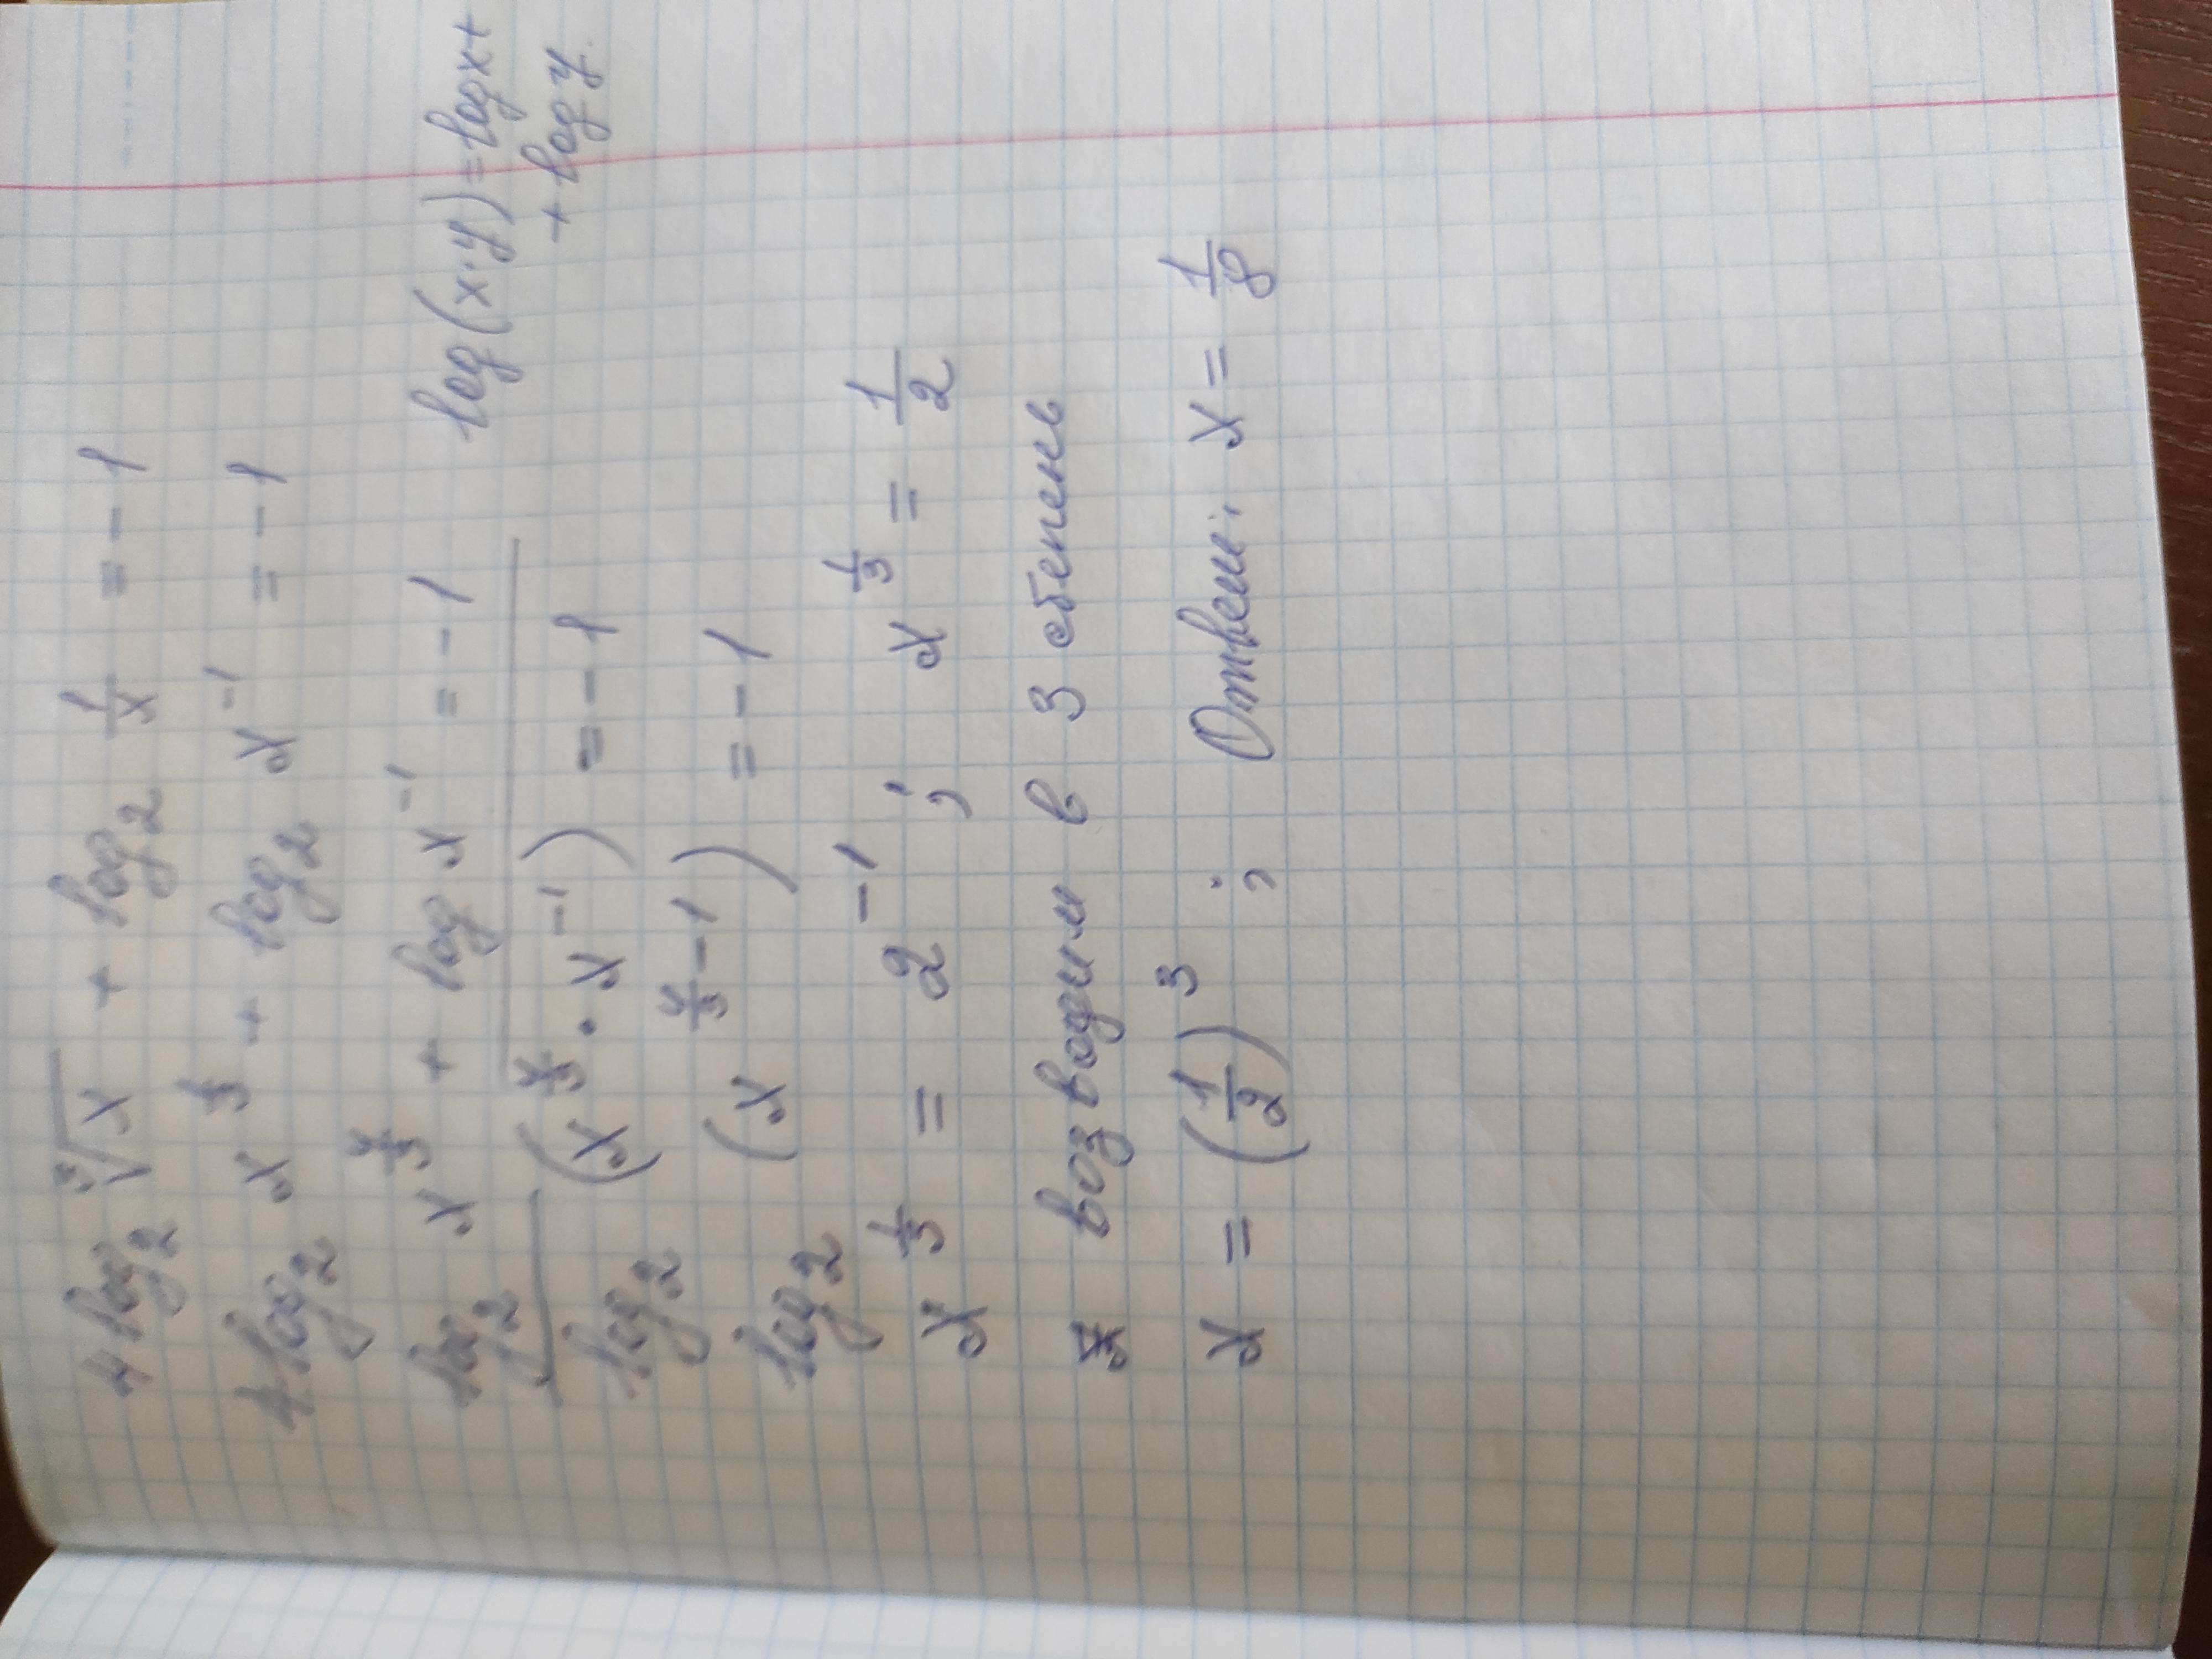 4 log₂ ∛x + log₂ 1/x = -1
4 log₂ x^(1/3) + log₂ x⁻¹ = -1
log₂ x^(4/3) + log x⁻¹ = -1
log(x·y) = logx +
+ log y.
log₂ (x^(4/3) · x⁻¹) = -1
log₂ (x^(4/3 - 1)) = -1
x^(1/3) = 2⁻¹ ; x^(1/3) = 1/2
возводим в 3 степень
x = (1/2)³ ; Ответ: x = 1/8